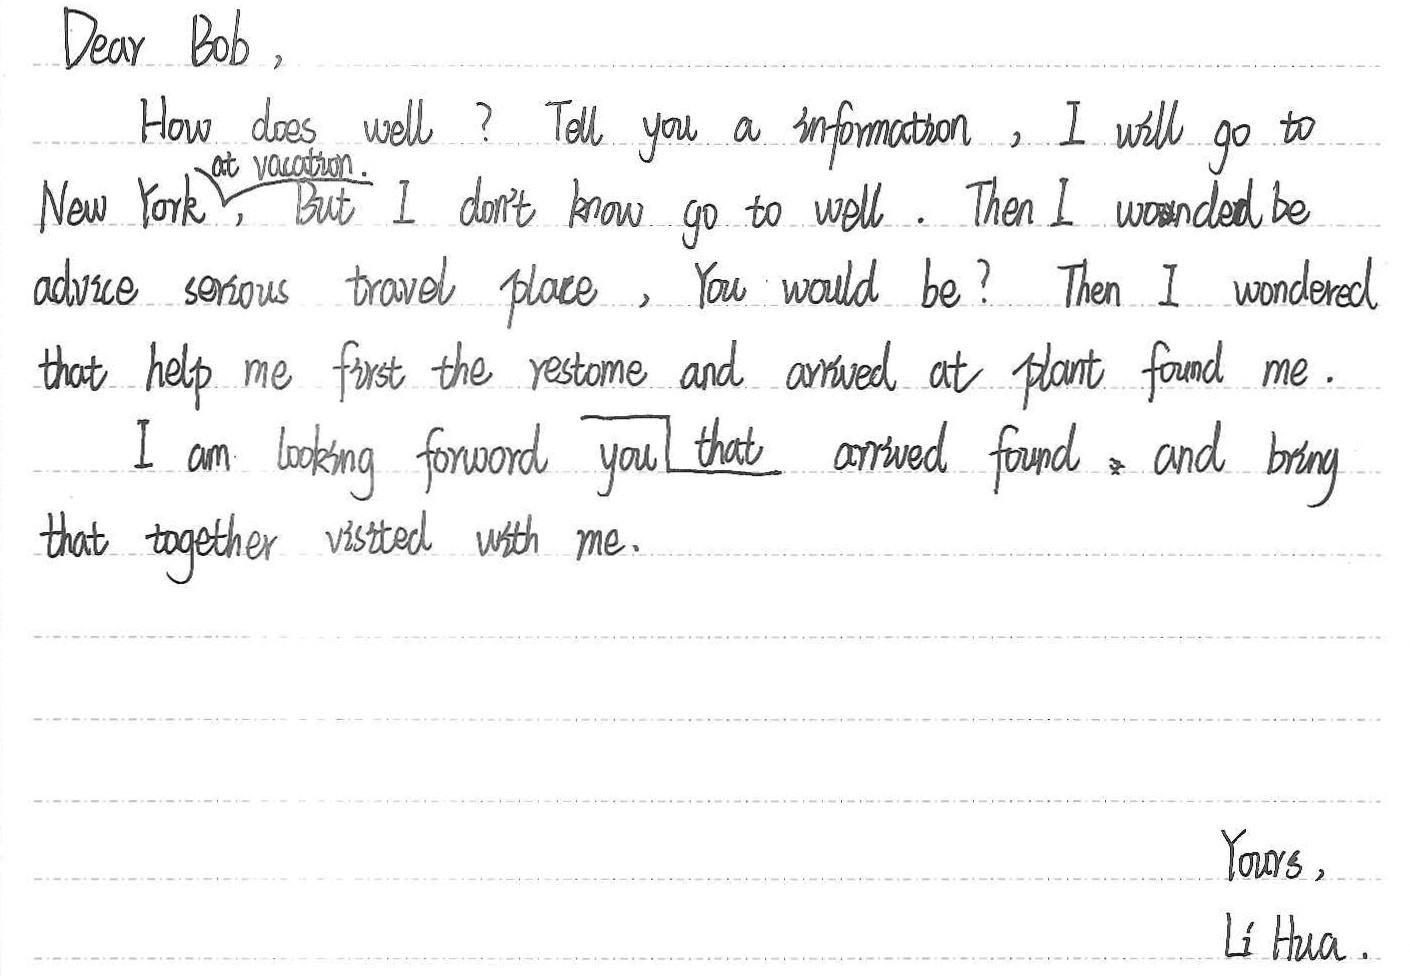 Dear Bob,
How does well? Tell you a information, I will go to
at vacation.
New York, But I don't know go to well. Then I wounded be
advice serious travel place, You would be? Then I wondered
that help me first the restome and arrived at plant found me.
I am looking forword you that arrived found. and bring
that together visited with me.
Yours,
Li Hua.